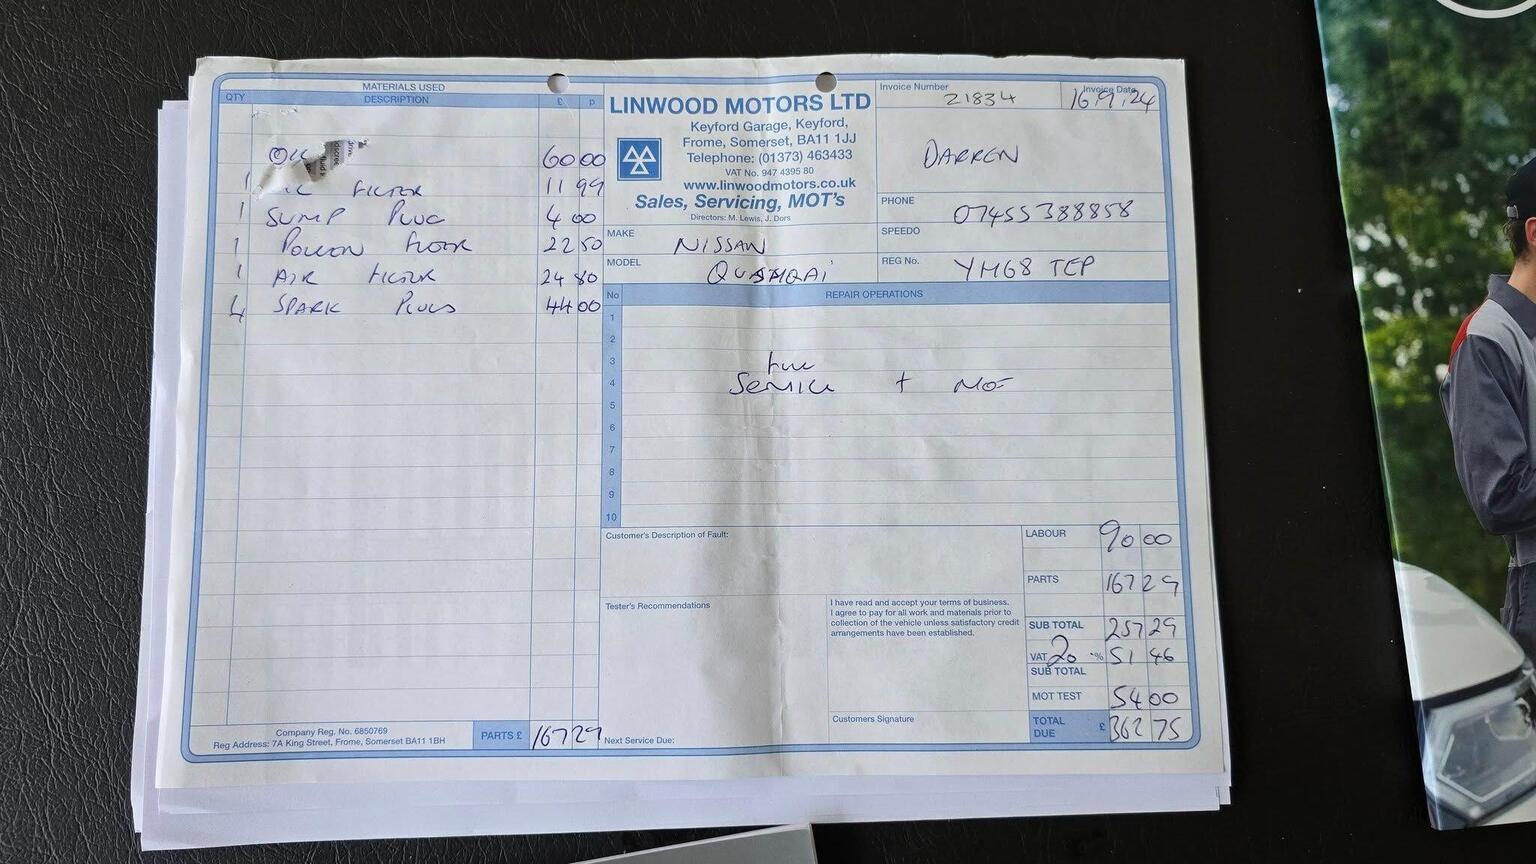 MATERIALS USED
QTY DESCRIPTION £ p
OIL 60 00
1 FILTER 11 99
1 SUMP PLUG 4 00
1 POLLEN FILTER 22 50
1 AIR FILTER 24 80
4 SPARK PLUGS 44 00
Company Reg. No. 6850769
Reg Address: 7A King Street, Frome, Somerset BA11 1BH
PARTS £ 167 29
LINWOOD MOTORS LTD
Keyford Garage, Keyford,
Frome, Somerset, BA11 1JJ
Telephone: (01373) 463433
VAT No. 947 4395 80
www.linwoodmotors.co.uk
Sales, Servicing, MOT's
Directors: M. Lewis, J. Dors
Invoice Number 21834
Invoice Date 16.9.24
DARREN
PHONE 07455388858
SPEEDO
MAKE NISSAN
MODEL QUASHQAI
REG No. YM68 TEP
No REPAIR OPERATIONS
1
2
3 Full
4 Service + MOT
5
6
7
8
9
10
Customer's Description of Fault:
Tester's Recommendations
I have read and accept your terms of business.
I agree to pay for all work and materials prior to
collection of the vehicle unless satisfactory credit
arrangements have been established.
Customers Signature
Next Service Due:
LABOUR 90 00
PARTS 167 29
SUB TOTAL 257 29
VAT 20 % 51 46
SUB TOTAL
MOT TEST 54 00
TOTAL DUE £ 362 75